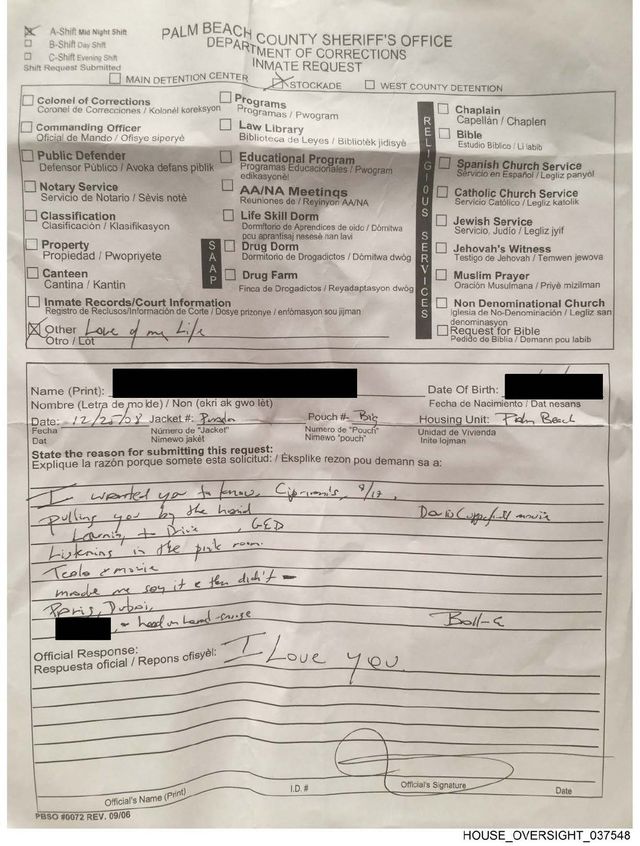 A-Shift Mid Night Shift
B-Shift Day Shift
C-Shift Evening Shift
Shift Request Submitted
PALM BEACH COUNTY SHERIFF'S OFFICE
DEPARTMENT OF CORRECTIONS
INMATE REQUEST
MAIN DETENTION CENTER STOCKADE WEST COUNTY DETENTION
Colonel of Corrections
Coronel de Correcciones / Kolonèl koreksyon
Commanding Officer
Oficial de Mando / Ofisye siperyè
Public Defender
Defensor Público / Avoka defans piblik
Notary Service
Servicio de Notario / Sèvis notè
Classification
Clasificación / Klasifikasyon
Property
Propiedad / Pwopriyete
Canteen
Cantina / Kantin
Inmate Records/Court Information
Registro de Reclusos/Información de Corte / Dosye prizonye / enfòmasyon sou jijman
Other Love of my Life
Otro / Lòt
Programs
Programas / Pwogram
Law Library
Biblioteca de Leyes / Bibliotèk jidisyè
Educational Program
Programas Educacionales / Pwogram
edikasyonèl
AA/NA Meetings
Reuniones de / Reyinyon AA/NA
SAAP
Life Skill Dorm
Dormitorio de Aprendices de oido / Dòmitwa
pou aprantisaj nesesè nan lavi
Drug Dorm
Dormitorio de Drogadictos / Dòmitwa dwòg
Drug Farm
Finca de Drogadictos / Reyadaptasyon dwòg
RELIGIOUS SERVICES
Chaplain
Capellán / Chaplen
Bible
Estudio Bíblico / Li labib
Spanish Church Service
Servicio en Español / Legliz panyòl
Catholic Church Service
Servicio Católico / Legliz katolik
Jewish Service
Servicio, Judío / Legliz jyif
Jehovah's Witness
Testigo de Jehovah / Temwen jewova
Muslim Prayer
Oración Musulmana / Priyè mizilman
Non Denominational Church
Iglesia de No-Denominación / Legliz san
denominasyon
Request for Bible
Pedido de Biblia / Demann pou labib
Name (Print):
Nombre (Letra de molde) / Non (ekri ak gwo lèt)
Date Of Birth:
Fecha de Nacimiento / Dat nesans
Date: 12/20/08 Jacket #: Pouch #: Big Housing Unit: Palm Beach
Fecha Número de "Jacket" Número de "Pouch" Unidad de Vivienda
Dat Nimewo jakèt Nimewo "pouch" Inite lojman
State the reason for submitting this request:
Explique la razón porque somete esta solicitud: / Eksplike rezon pou demann sa a:
I wanted you to know, Cipriani's, 9/17,
pulling you by the hand David Copperfield movie
Learning to Drive, GED
Listening in the pink room.
movie
made me say it & then didn't -
Paris, Dubai,
head on hand - Ball-E
Official Response: I Love you
Respuesta oficial / Repons ofisyèl:
Official's Name (Print) I.D. # Official's Signature Date
PBSO #0072 REV. 09/06
HOUSE_OVERSIGHT_037548